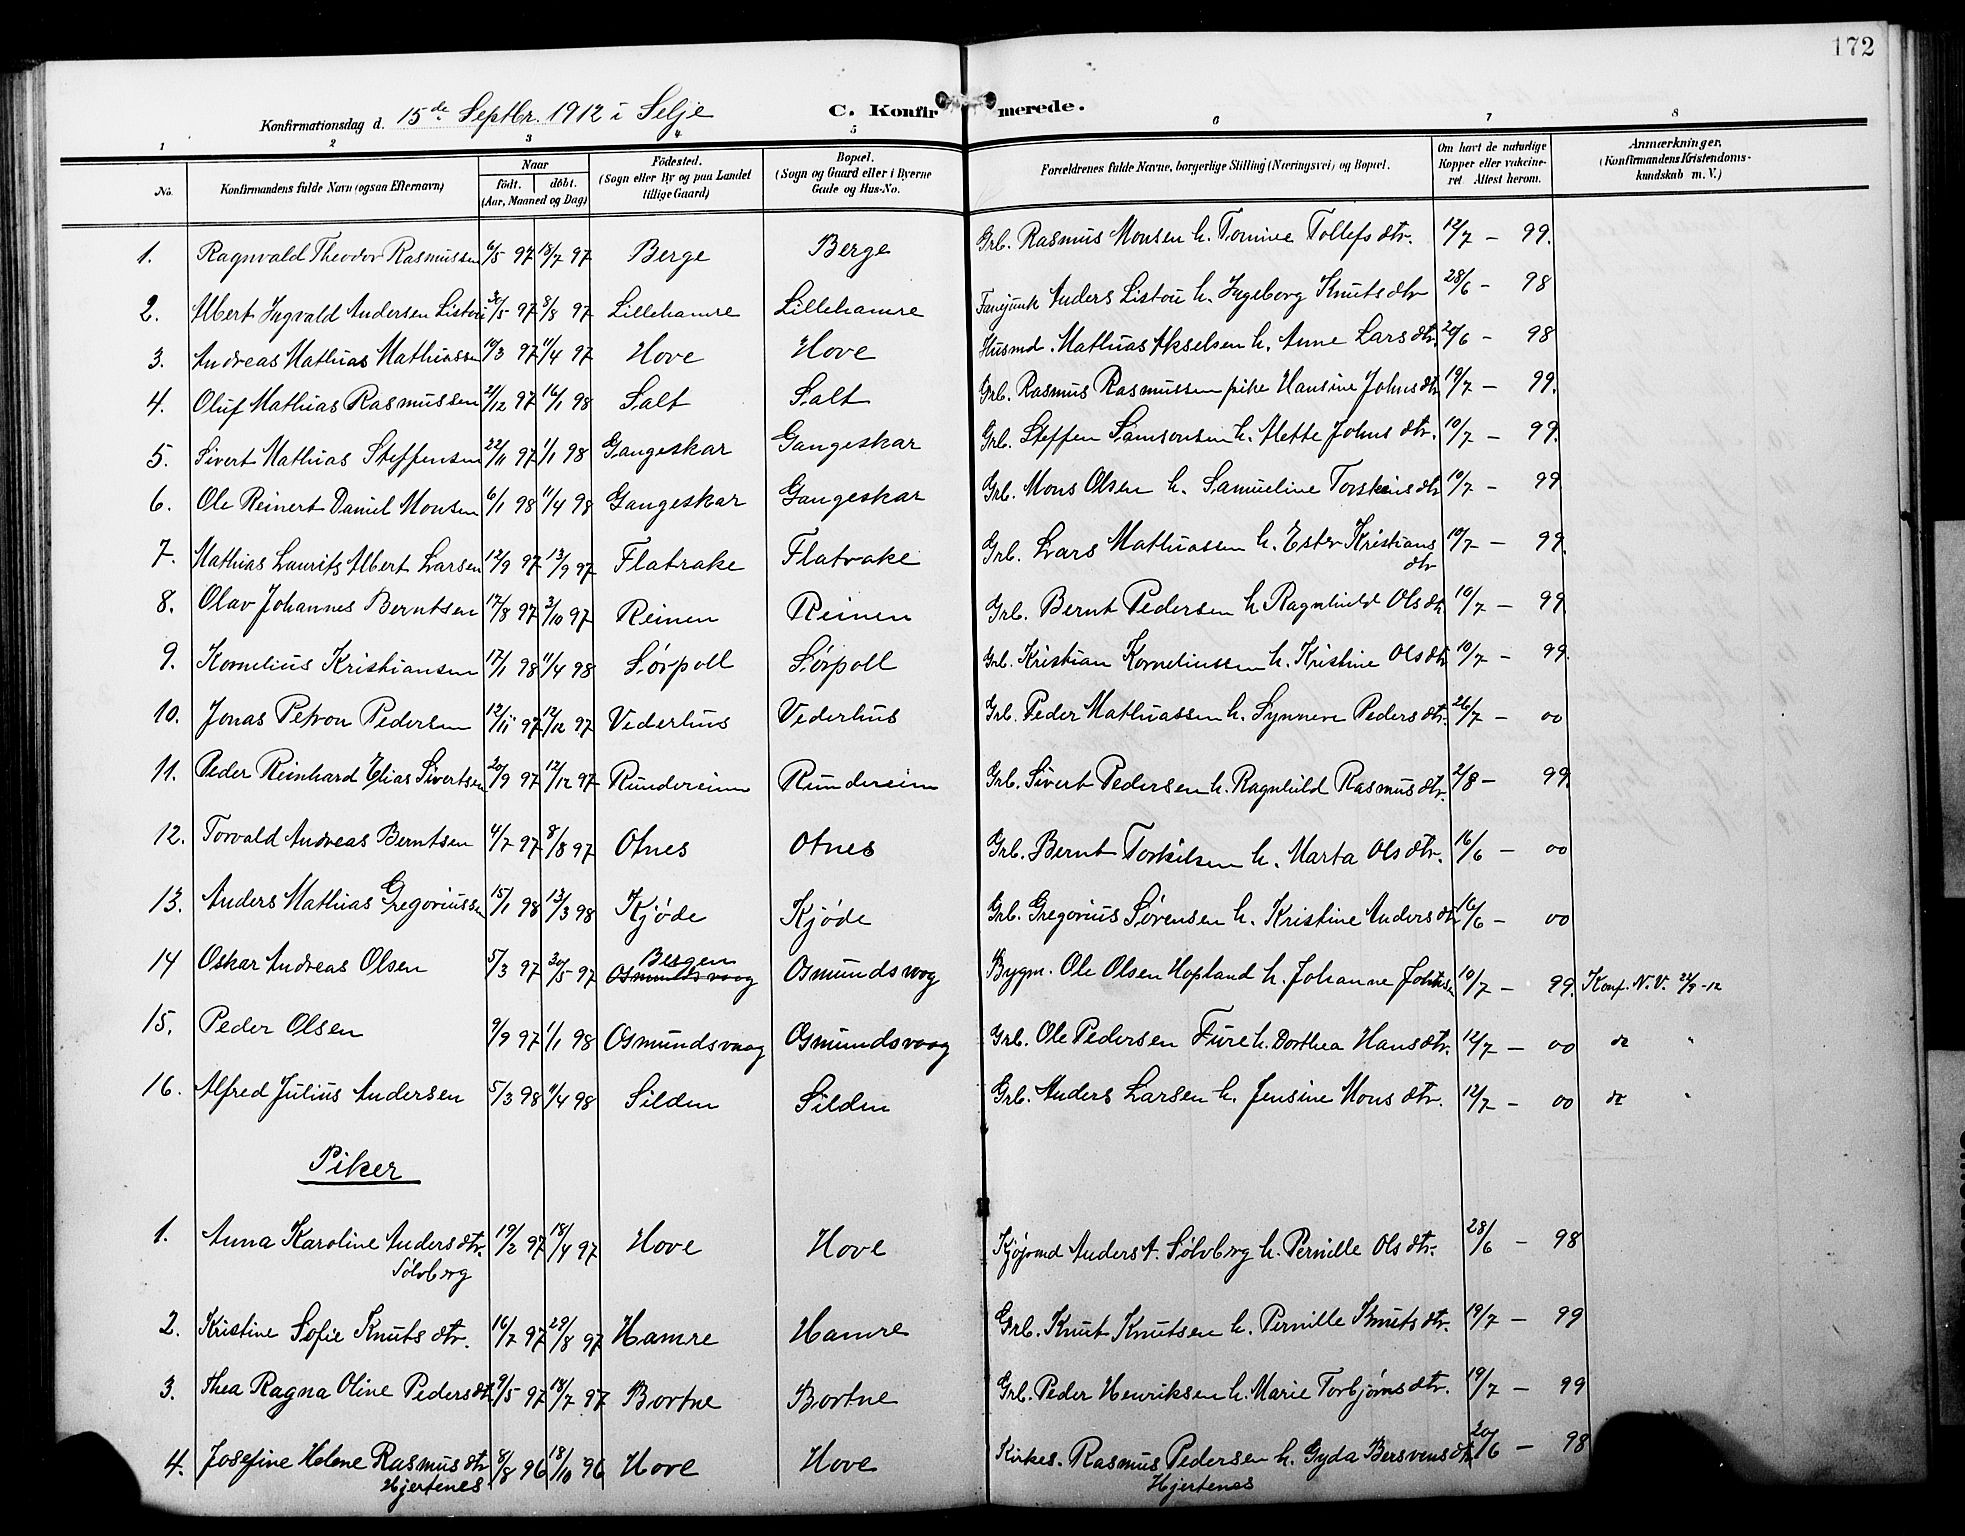 172
Konfirmationsdag d. 15de Septbr. 1912 i Selje C. Konfirmerede.
1 2 3 4 5 6 7 8
No. Konfirmandens fulde Navn (ogsaa Efternavn) Naar født. døbt. (Aar, Maaned og Dag) Fødested. (Sogn eller By og paa Landet tillige Gaard) Bopæl. (Sogn og Gaard eller i Byerne Gade og Hus-No. Forældrenes fulde Navne, borgerlige Stilling (Næringsvei) og Bopæl. Om havt de naturlige Kopper eller vakcineret Attest herom. Anmærkninger. (Konfirmandens Kristendomskundskab m. V.)
1. Ragnvald Theodor Rasmussen 6/5 97 18/7 97 Berge Berge Grb. Rasmus Monsen h. Tomine Tollefsdtr. 12/7 — 99.
2. Albert Ingvald Andersen Listou 30/5 97 8/8 97 Lillehamre Lillehamre Fanejunk Anders Listou h. Ingeborg Knutsdtr 28/6 — 98
3. Andreas Mathias Mathiassen 10/3 97 11/4 97 Hove Hove Husmd. Mathias Akselsen h. Anne Larsdtr. 20/6 — 98
4. Oluf Mathias Rasmussen 21/12 97 16/1 98 Salt Salt Grb. Rasmus Rasmussen pike Hansine Johnsdtr 19/7 — 99.
5. Sivert Mathias Steffensen 22/11 97 1/1 98 Gangeskar Gangeskar Grb. Steffen Samsonsen h. Mette Johnsdtr. 10/7 — 99.
6. Ole Reinert Daniel Monsen 6/1 98 11/4 98 Gangeskar Gangeskar Grb. Mons Olsen h. Samueline Torsteinsdtr 10/7 — 99
7. Mathias Laurits Albert Larsen 12/9 97 13/9 97 Flatrake Flatrake Grb. Lars Mathiassen h. Ester Kristians 10/7 — 99.
dtr
8. Olav Johannes Berntsen 17/8 97 3/10 97 Reinen Reinen Grb. Bernt Pedersen h. Ragnhild Olsdtr 10/7 — 99
9. Kornelius Kristiansen 17/1 98 11/4 98 Sørpoll Sørpoll Grb. Kristian Korneliussen h. Kristine Olsdtr 10/7 — 99.
10. Jonas Petron Pedersen 12/11 97 12/12 97 Vederhus Vederhus Grb. Peder Mathiassen h. Synneve Pedersdtr. 26/7 — 00
11. Peder Reinhard Elias Sivertsen 20/9 97 12/12 97 Rundereim Rundereim Grb. Sivert Pedersen h. Ragnhild Rasmusdtr. 2/8 — 99.
12. Torvald Andreas Berntsen 4/7 97 8/8 97 Otnes Otnes Grb. Bernt Torkilsen h. Marta Olsdtr. 16/6 — 00
13. Anders Mathias Gregoriussen 15/1 98 13/3 98 Kjøde Kjøde Grb. Gregorius Sørensen h. Kristine Andersdtr 16/6 — 00
14 Oskar Andreas Olsen 5/3 97 30/5 97 Bergen Osmundsvaag Osmundsvog Bygm. Ole Olsen Hopland h. Johanne Johnsen 10/7 — 99. Konf. N.V. 22/9-12
15. Peder Olsen 9/9 97 1/1 98 Osmundsvaag Osmundsvaag Grb. Ole Pedersen Fure h. Dorthea Hansdtr. 12/7 — 00 do "
16. Alfred Julius Andersen 5/3 98 11/4 98 Silden Silden Grb. Anders Larsen h. Jensine Monsdtr. 12/7 — 00 do "
Piker
1. Anna Karoline Andersdtr. 19/2 97 18/4 97 Hove Hove Kjøpmd Anders A. Sølvberg h. Pernille Olsdtr. 28/6 — 98
Sølvberg
2. Kristine Sofie Knutsdtr. 16/7 97 29/8 97 Hamre Hamre Grb. Knut Knutsen h. Pernille Knutsdtr. 19/7 — 99
3. Thea Ragna Oline Pedersdtr 9/5 97 18/7 97 Bortne Bortne Grb. Peder Henriksen h. Marie Torbjørnsdtr. 19/7 — 99
4. Josefine Helene Rasmusdtr 8/8 96 18/10 96 Hove Hove Kirkes. Rasmus Pedersen h. Gyda Bersvensdtr 20/6 — 98
Hjertenes Hjertenes